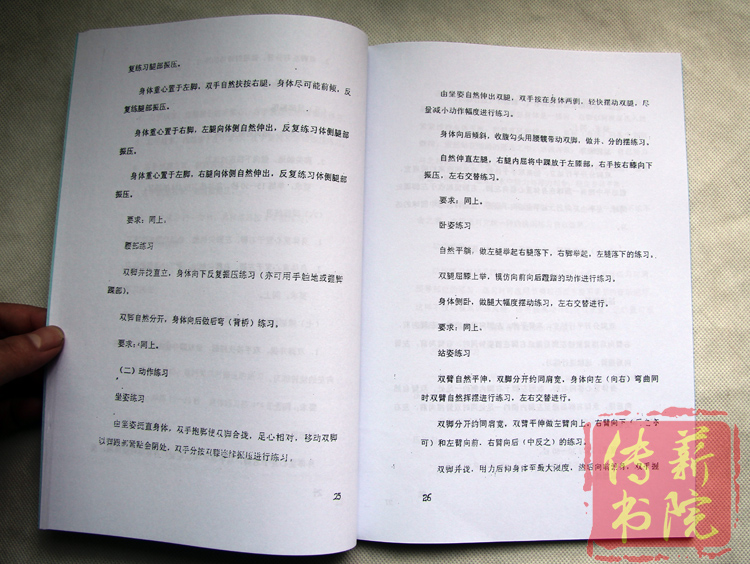 复练习腿部振压。
身体重心置于左脚，双手自然扶按右腿，身体尽可能前倾，反
复练腿部振压。
身体重心置于右脚，左腿向体侧自然伸出，反复练习体侧腿部
振压。
身体重心置于左脚，右腿向体侧自然伸出，反复练习体侧腿部
振压。
要求：同上。
腰部练习
双脚并拢直立，身体向下反复振压练习（亦可用手触地或握脚
踝部）。
双脚自然分开，身体向后做后弯（背桥）练习。
要求：同上。
（二）动作练习
坐姿练习
由坐姿挺直身体，双手抱脚使双脚合拢，足心相对，移动双脚
以脚跟部紧贴会阴处，双手分按双膝连续振压进行练习。
25
由坐姿自然伸出双腿，双手按在身体两侧，轻快摆动双腿，尽
量减小动作幅度进行练习。
身体向后倾斜，收腹勾头用腰髋带动双脚，做并、分的摆练习。
自然伸直左腿，右腿内屈将中踝放于左膝部，右手按右膝向下
振压，左右交替练习。
要求：同上。
卧姿练习
自然平躺，做左腿举起右腿落下，右脚举起，左腿落下的练习。
双腿屈膝上举，模仿向前向后蹬踏的动作进行练习。
身体侧卧，做腿大幅度摆动练习，左右交替进行。
要求：同上。
站姿练习
双臂自然平伸，双脚分开约同肩宽，身体向左（向右）弯曲同
时双臂自然挥摆进行练习，左右交替进行。
双脚分开约同肩宽，双臂平伸做左臂向上，右臂向下（
可）和左臂向前、右臂向后（中反之）的练习。
双脚并拢，用力后仰身体至最大限度，然后向前 双手握
26
传薪
书院